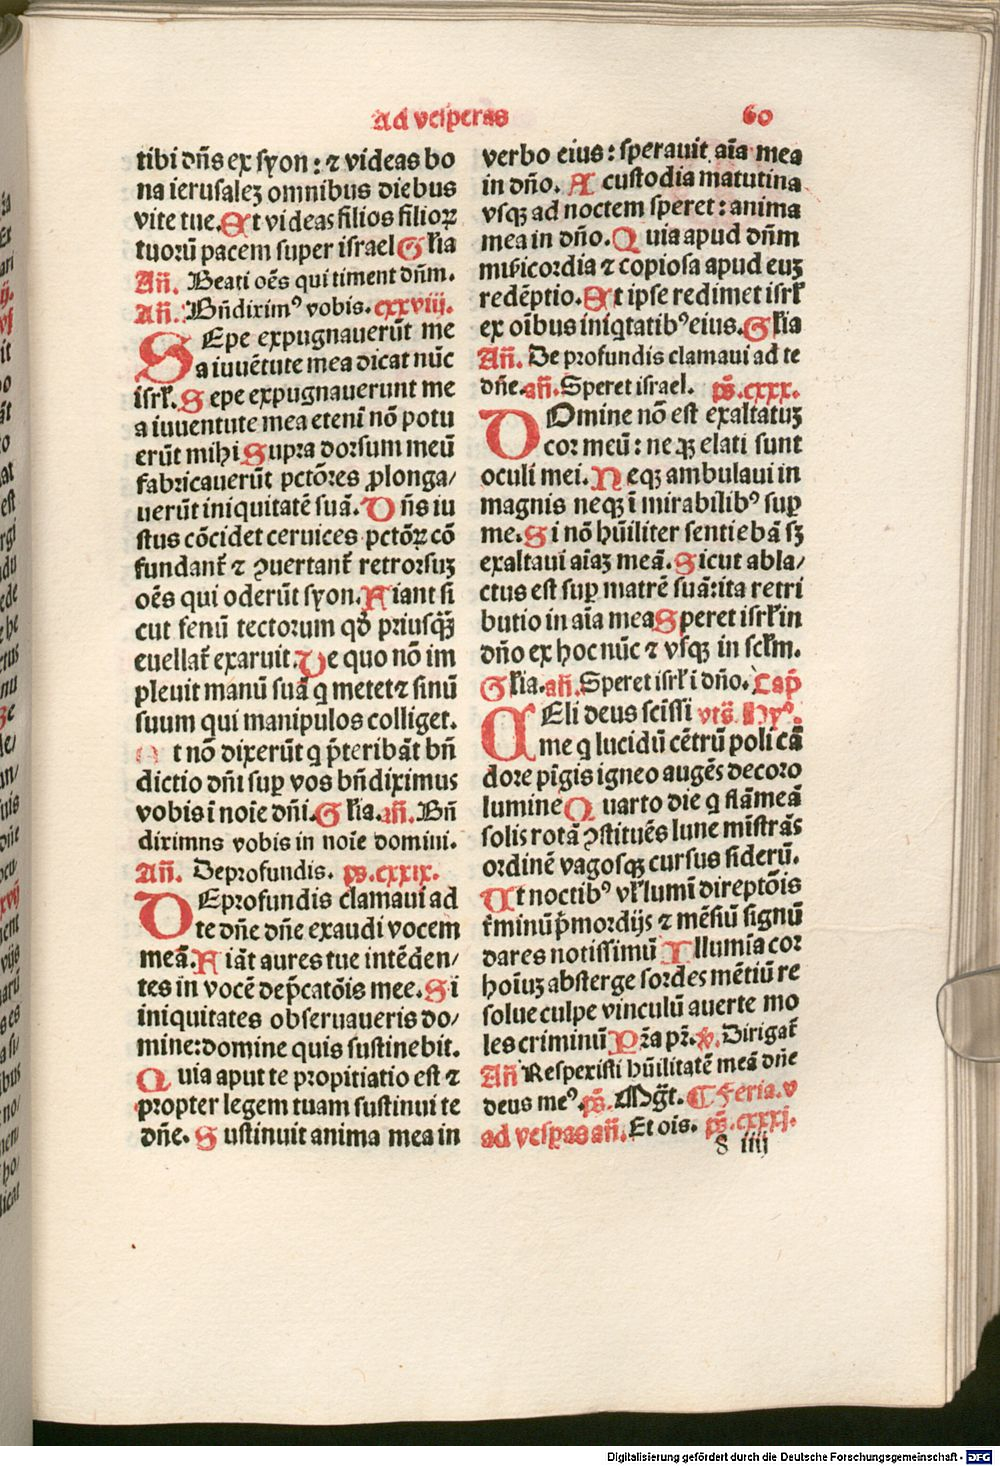 Ad vesperas 60
tibi dn̄s ex syon : ⁊ videas bo
na ierusaleʒ omnibus diebus
vite tue. Et videas filios filioꝝ
tuorū pacem super israel Gl’ia
An̄. Beati oēs qui timent dn̄m.
An̄. Bn̄dixim⁹ vobis. cxxviij.
SEpe expugnauerūt me
a iuuētute mea dicat nūc
isrl’. Sepe expugnauerunt me
a iuuentute mea etenī nō potu
erūt mihi Supra dorsum meū
fabricauerūt pctōres ꝓlonga/
uerūt iniquitatē suā. Dn̄s iu
stus cōcidet ceruices pctōꝝ cō
fundant̄ ⁊ ꝯuertant̄ retrorsuʒ
oēs qui oderūt syon. Fiant si
cut fenū tectorum qď priusqꝫ̄
euellat̄ exaruit. De quo nō im
pleuit manū suā q metet ⁊ sinū
suum qui manipulos colliget.
Et nō dixerūt q p̄teribāt bn̄
dictio dn̄i suꝑ vos bn̄diximus
vobis ī noīe dn̄i. Gl’ia. an̄. Bn̄
diximns vobis in noīe domini.
An̄. Deprofundis. ps̄. cxxix.
DEprofundis clamaui ad
te dn̄e dn̄e exaudi vocem
meā. Fiāt aures tue intēden/
tes in vocē dep̄catōis mee. Si
iniquitates obseruaueris do/
mine: domine quis sustinebit.
Quia aput te propitiatio est ⁊
propter legem tuam sustinui te
dn̄e. Sustinuit anima mea in
verbo eius : sperauit aīa mea
in dn̄o. A custodia matutina
vsqꝫ ad noctem speret : anima
mea in dn̄o. Quia apud dn̄m
mīsicordia ⁊ copiosa apud euʒ
redēptio. Et ipse redimet isrl’
ex oībus iniqtatib⁹ eius. Gl’ia
An̄. De profundis clamaui ad te
dn̄e. an̄. Speret israel. ps̄. cxxx.
DOmine nō est exaltatuʒ
cor meū : neqꝫ elati sunt
oculi mei. Neqꝫ ambulaui in
magnis neqꝫ ī mirabilib⁹ suꝑ
me. Si nō hūiliter sentiebā sʒ
exaltaui aīaʒ meā. Sicut abla/
ctus est suꝑ matrē suā: ita retri
butio in aīa mea Speret isrl’ in
dn̄o ex hoc nūc ⁊ vsqꝫ in scl’m.
Gl’ia. an̄. Speret isrl’ i dn̄o. Cap̄
CEli deus scīssi vts̄. Hy⁹.
me q lucidū cētrū poli cā
dore pīgis igneo augēs decoro
lumine Quarto die q flāmeā
solis rotā ꝯstituēs lune mīstrās
ordinē vagosqꝫ cursus siderū.
Ut noctib⁹ vl’ lumī direptōis
t̄minū p̄mordijs ⁊ mēsiū signū
dares notissimū Illumīa cor
hoīuʒ absterge sordes mētiū re
solue culpe vinculū auerte mo
les criminū Pr̄a pr̄. ℣. Dirigat̄
An̄ Respexisti hūilitatē meā dn̄e
deus me⁹. ps̄. Mḡt. ¶ Feria. v
ad vesꝑas an̄. Et oīs. ps̄. cxxxj.
g iiij
Digitalisierung gefördert durch die Deutsche Forschungsgemeinschaft - DFG